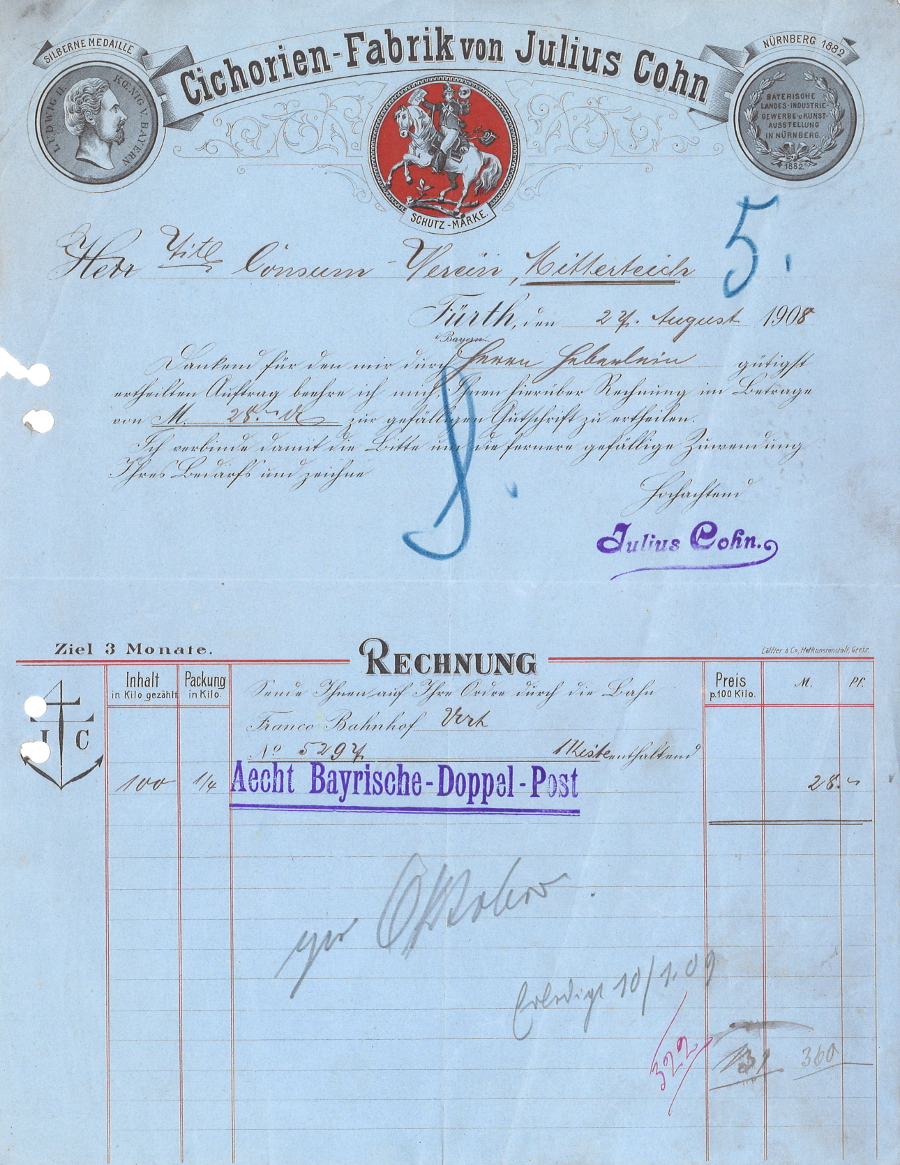 SILBERNE MEDAILLE
Cichorien-Fabrik von Julius Cohn
NÜRNBERG 1882
LUDWIG II. KÖNIG V. BAYERN
BAYERISCHE
LANDES-INDUSTRIE
GEWERBE u KUNST-
AUSSTELLUNG
IN NÜRNBERG.
1882
SCHUTZ-MARKE.
5.
Herr Titl. Consum-Verein, Mitterteich
Fürth, den 27. August 1908
Bayern
Dankend für den mir durch Herrn Heberlein gütigst
ertheilten Auftrag beehre ich mich Ihnen hierüber Rechnung im Betrage
von M. 28.- zur gefälligen Gutschrift zu ertheilen.
Ich verbinde damit die Bitte um die fernere gefällige Zuwendung
Ihres Bedarfs und zeichne
Hochachtend
Julius Cohn.
Ziel 3 Monate.
RECHNUNG
Inhalt
in Kilo gezählt
Packung
in Kilo.
Sende Ihnen auf Ihre Ordre durch die Bahn
Preis
p.100 Kilo.
M.
Pf.
Franco Bahnhof
J C
No 5297 1 Kiste enthaltend
100 1/4 Aecht Bayrische-Doppel-Post 28.-
per Oktober.
Erledigt 10/1.09
322
360